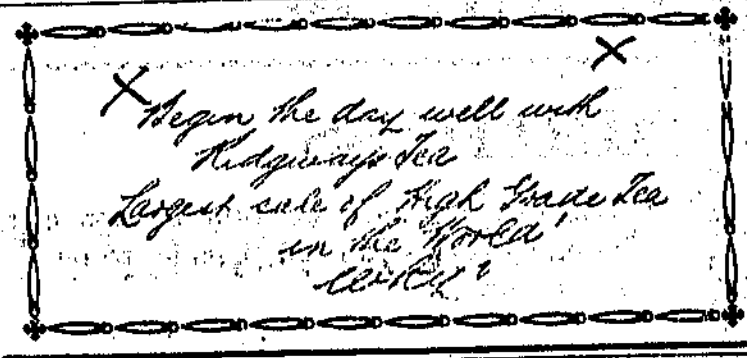 Begin the day well with
Ridgways Tea
Largest sale of High Grade Tea
in the World!
WHY?